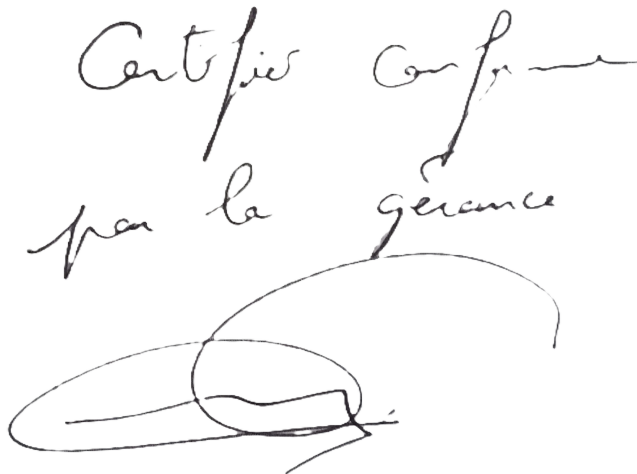 Certifié conforme
par la gérance